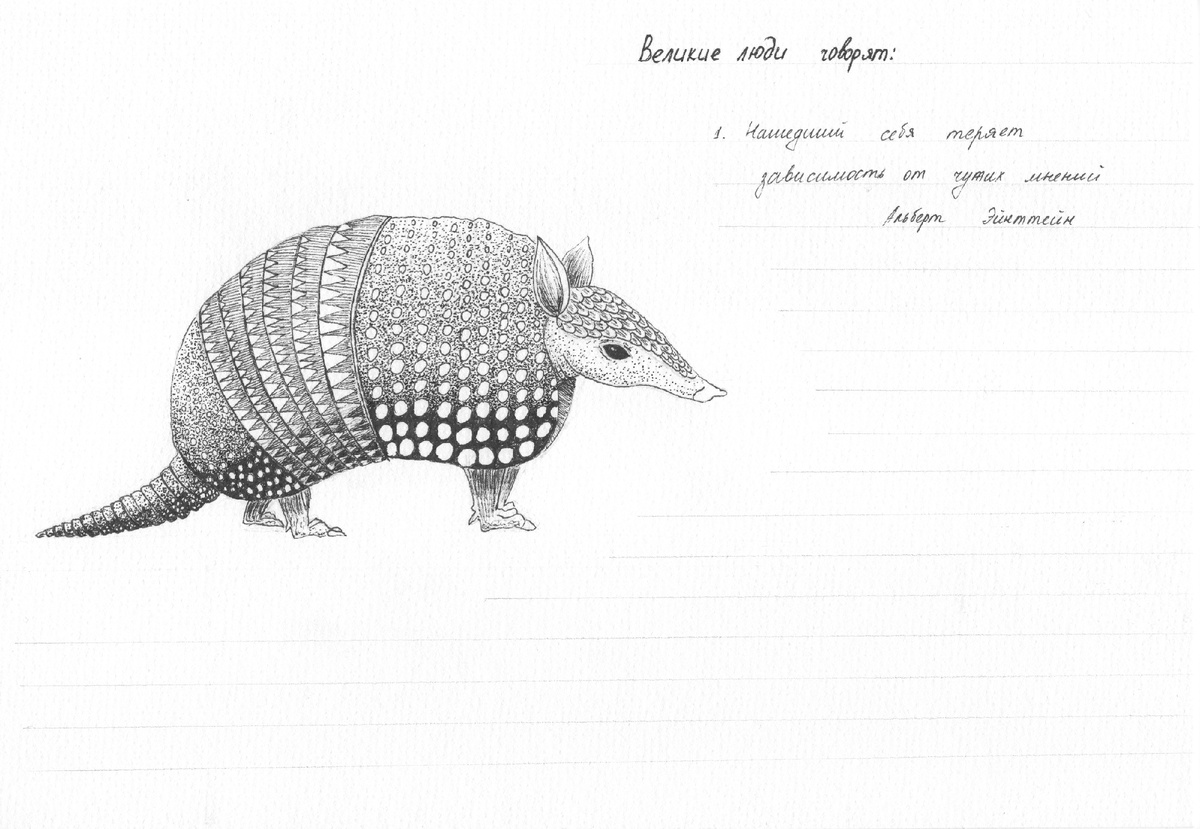 Великие люди говорят:
1. Нашедший себя теряет
зависимость от чужих мнений
Альберт Эйнштейн